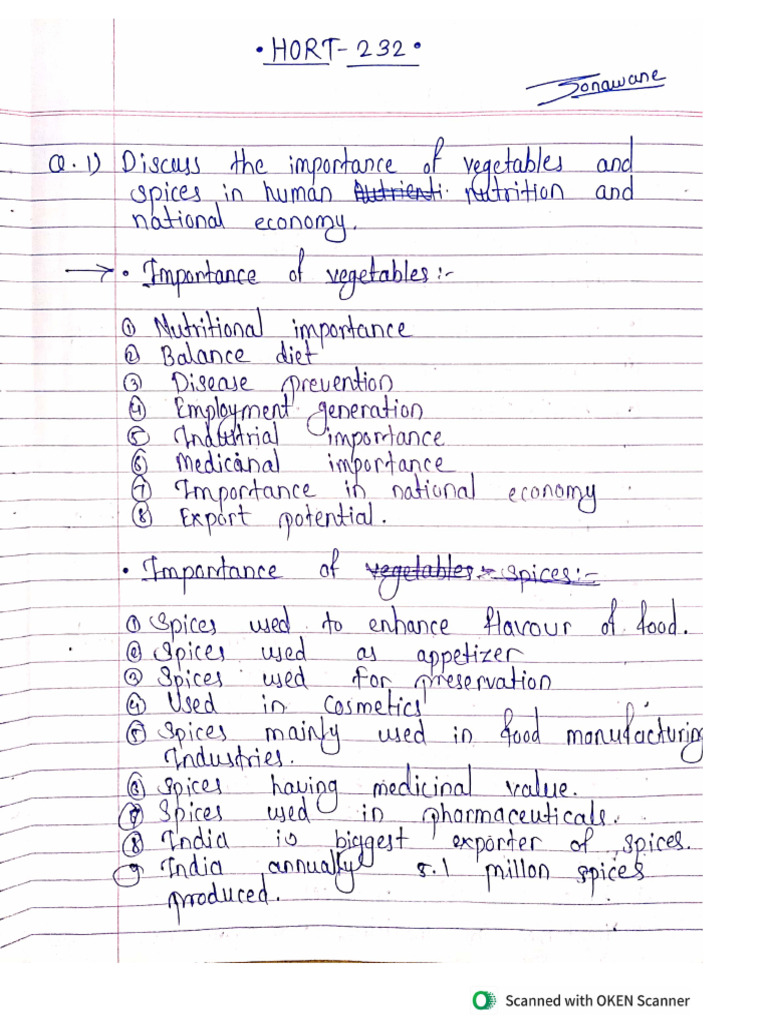 • HORT-232 •
Sonawane
Q.1) Discuss the importance of vegetables and
spices in human Nutrienti. nutrition and
national economy.
→ • Importance of vegetables :-
① Nutritional importance
② Balance diet
③ Disease prevention
④ Employment generation
⑤ Industrial importance
⑥ Medicinal importance
⑦ Importance in national economy
⑧ Export potential.
• Importance of vegetables :- spices :-
① Spices used to enhance flavour of food.
② Spices used as appetizer
③ Spices used for preservation
④ Used in cosmetics
⑤ Spices mainly used in food manufacturing
Industries.
⑥ Spices having medicinal value.
⑦ Spices used in pharmaceuticals.
⑧ India is biggest exporter of spices.
⑨ India annually 5.1 millon spices
produced.
Scanned with OKEN Scanner